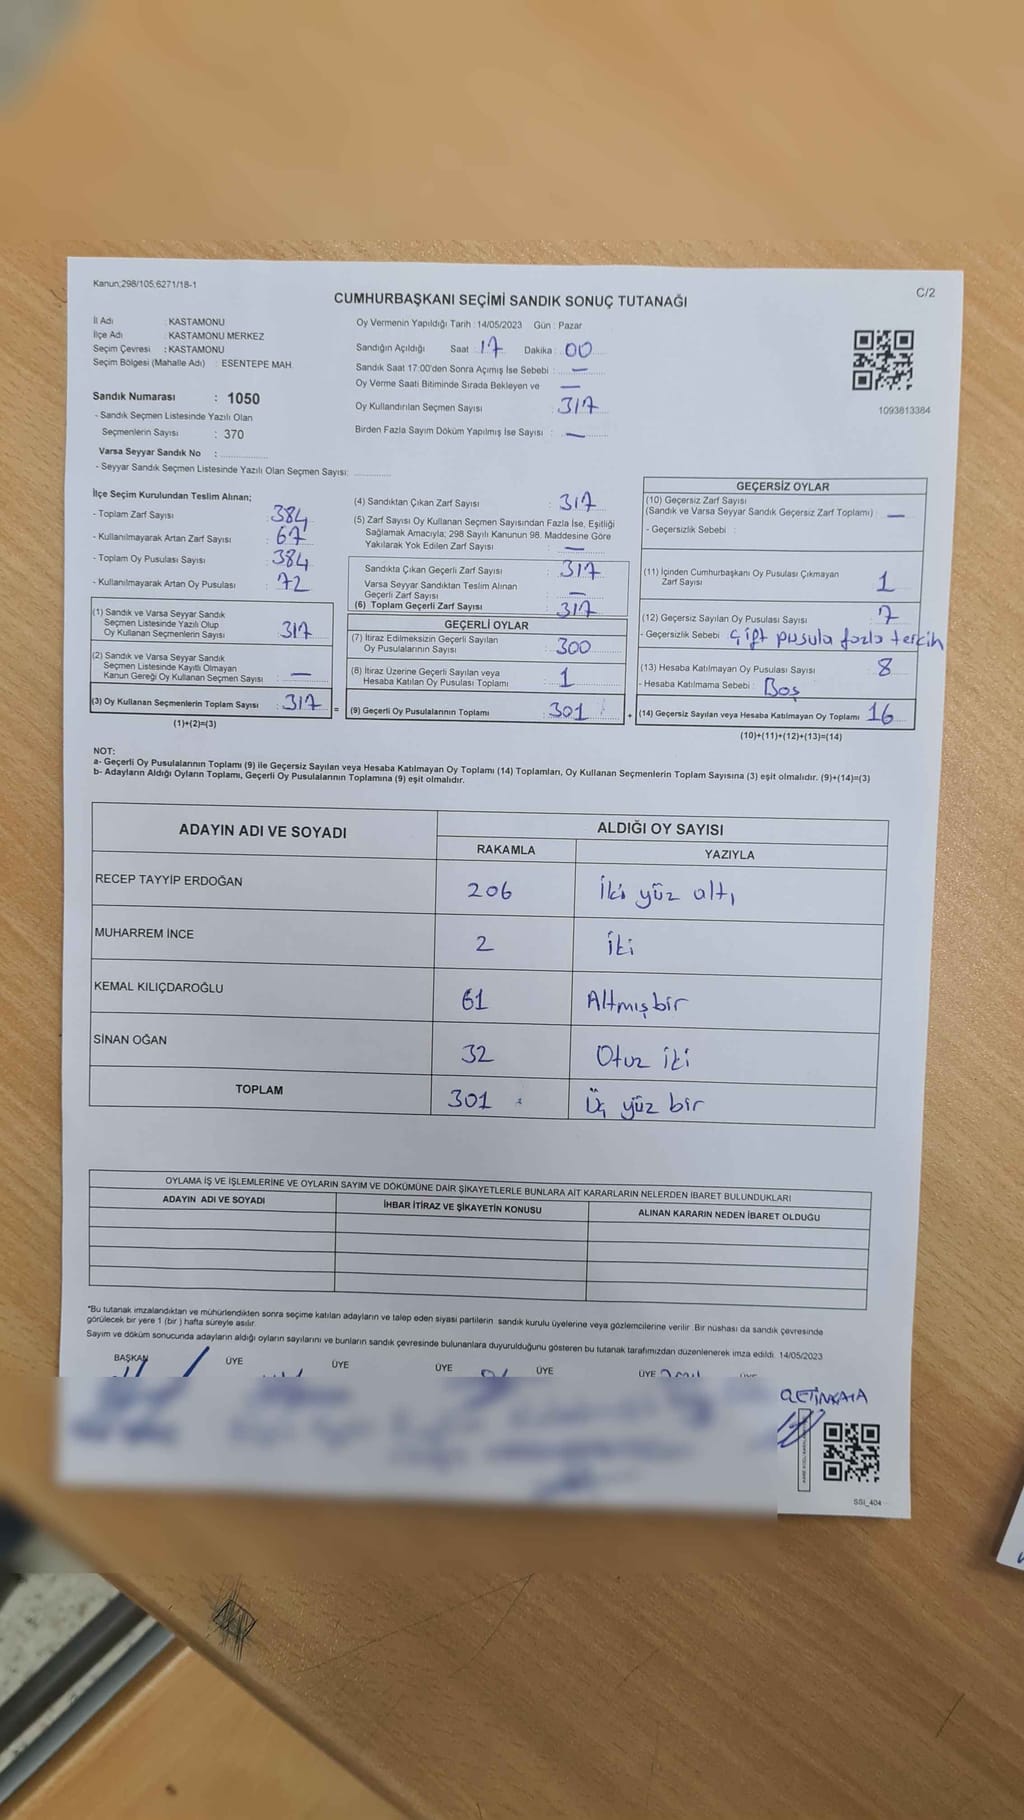 Kanun;298/105;6271/18-1
C/2
CUMHURBAŞKANI SEÇİMİ SANDIK SONUÇ TUTANAĞI
İl Adı : KASTAMONU
İlçe Adı : KASTAMONU MERKEZ
Seçim Çevresi : KASTAMONU
Seçim Bölgesi (Mahalle Adı) : ESENTEPE MAH.
Sandık Numarası : 1050
- Sandık Seçmen Listesinde Yazılı Olan
Seçmenlerin Sayısı : 370
Varsa Seyyar Sandık No :
- Seyyar Sandık Seçmen Listesinde Yazılı Olan Seçmen Sayısı:
Oy Vermenin Yapıldığı Tarih : 14/05/2023 Gün : Pazar
Sandığın Açıldığı Saat : 17 Dakika : 00
Sandık Saat 17:00'den Sonra Açımış İse Sebebi : —
Oy Verme Saati Bitiminde Sırada Bekleyen ve —
Oy Kullandırılan Seçmen Sayısı : 317
Birden Fazla Sayım Döküm Yapılmış İse Sayısı : —
1093813384
İlçe Seçim Kurulundan Teslim Alınan;
- Toplam Zarf Sayısı : 384
- Kullanılmayarak Artan Zarf Sayısı : 67
- Toplam Oy Pusulası Sayısı : 384
- Kullanılmayarak Artan Oy Pusulası : 72
(1) Sandık ve Varsa Seyyar Sandık
Seçmen Listesinde Yazılı Olup
Oy Kullanan Seçmenlerin Sayısı : 317
(2) Sandık ve Varsa Seyyar Sandık
Seçmen Listesinde Kayıtlı Olmayan
Kanun Gereği Oy Kullanan Seçmen Sayısı : —
(3) Oy Kullanan Seçmenlerin Toplam Sayısı : 317
(1)+(2)=(3)
(4) Sandıktan Çıkan Zarf Sayısı : 317
(5) Zarf Sayısı Oy Kullanan Seçmen Sayısından Fazla İse, Eşitliği
Sağlamak Amacıyla; 298 Sayılı Kanunun 98. Maddesine Göre
Yakılarak Yok Edilen Zarf Sayısı : —
Sandıkta Çıkan Geçerli Zarf Sayısı : 317
Varsa Seyyar Sandıktan Teslim Alınan
Geçerli Zarf Sayısı : —
(6) Toplam Geçerli Zarf Sayısı : 317
GEÇERLİ OYLAR
(7) İtiraz Edilmeksizin Geçerli Sayılan
Oy Pusulalarının Sayısı : 300
(8) İtiraz Üzerine Geçerli Sayılan veya
Hesaba Katılan Oy Pusulası Toplamı : 1
= (9) Geçerli Oy Pusulalarının Toplamı : 301
GEÇERSİZ OYLAR
(10) Geçersiz Zarf Sayısı
(Sandık ve Varsa Seyyar Sandık Geçersiz Zarf Toplamı) : —
- Geçersizlik Sebebi :
(11) İçinden Cumhurbaşkanı Oy Pusulası Çıkmayan
Zarf Sayısı : 1
(12) Geçersiz Sayılan Oy Pusulası Sayısı : 7
- Geçersizlik Sebebi : Çift pusula fazla tercih
(13) Hesaba Katılmayan Oy Pusulası Sayısı : 8
- Hesaba Katılmama Sebebi : Boş
+ (14) Geçersiz Sayılan veya Hesaba Katılmayan Oy Toplamı : 16
(10)+(11)+(12)+(13)=(14)
NOT:
a- Geçerli Oy Pusulalarının Toplamı (9) ile Geçersiz Sayılan veya Hesaba Katılmayan Oy Toplamı (14) Toplamları, Oy Kullanan Seçmenlerin Toplam Sayısına (3) eşit olmalıdır. (9)+(14)=(3)
b- Adayların Aldığı Oyların Toplamı, Geçerli Oy Pusulalarının Toplamına (9) eşit olmalıdır.
ADAYIN ADI VE SOYADI
ALDIĞI OY SAYISI
RAKAMLA YAZIYLA
RECEP TAYYİP ERDOĞAN 206 İki yüz altı
MUHARREM İNCE 2 İki
KEMAL KILIÇDAROĞLU 61 Altmışbir
SİNAN OĞAN 32 Otuz iki
TOPLAM 301 Üç yüz bir
OYLAMA İŞ VE İŞLEMLERİNE VE OYLARIN SAYIM VE DÖKÜMÜNE DAİR ŞİKAYETLERLE BUNLARA AİT KARARLARIN NELERDEN İBARET BULUNDUKLARI
ADAYIN ADI VE SOYADI İHBAR İTİRAZ VE ŞİKAYETİN KONUSU ALINAN KARARIN NEDEN İBARET OLDUĞU
*Bu tutanak imzalandıktan ve mühürlendikten sonra seçime katılan adayların ve talep eden siyasi partilerin sandık kurulu üyelerine veya gözlemcilerine verilir. Bir nüshası da sandık çevresinde
görülecek bir yere 1 (bir ) hafta süreyle asılır.
Sayım ve döküm sonucunda adayların aldığı oyların sayılarını ve bunların sandık çevresinde bulunanlara duyurulduğunu gösteren bu tutanak tarafımızdan düzenlenerek imza edildi. 14/05/2023
BAŞKAN ÜYE ÜYE ÜYE ÜYE ÜYE
ÇETİNKAYA
SSI_404